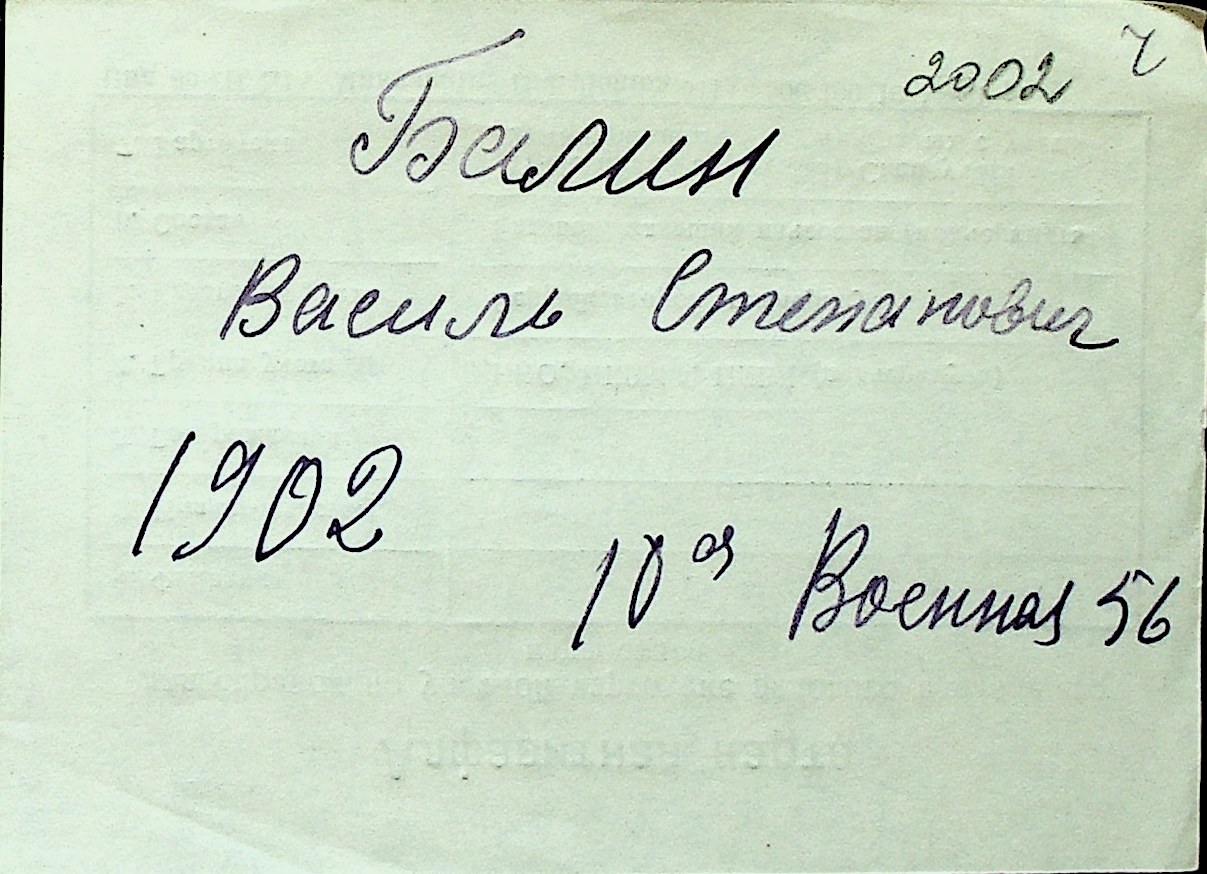 2002 ч
Балин
Василь Степанович
1902
10ая Военная 56